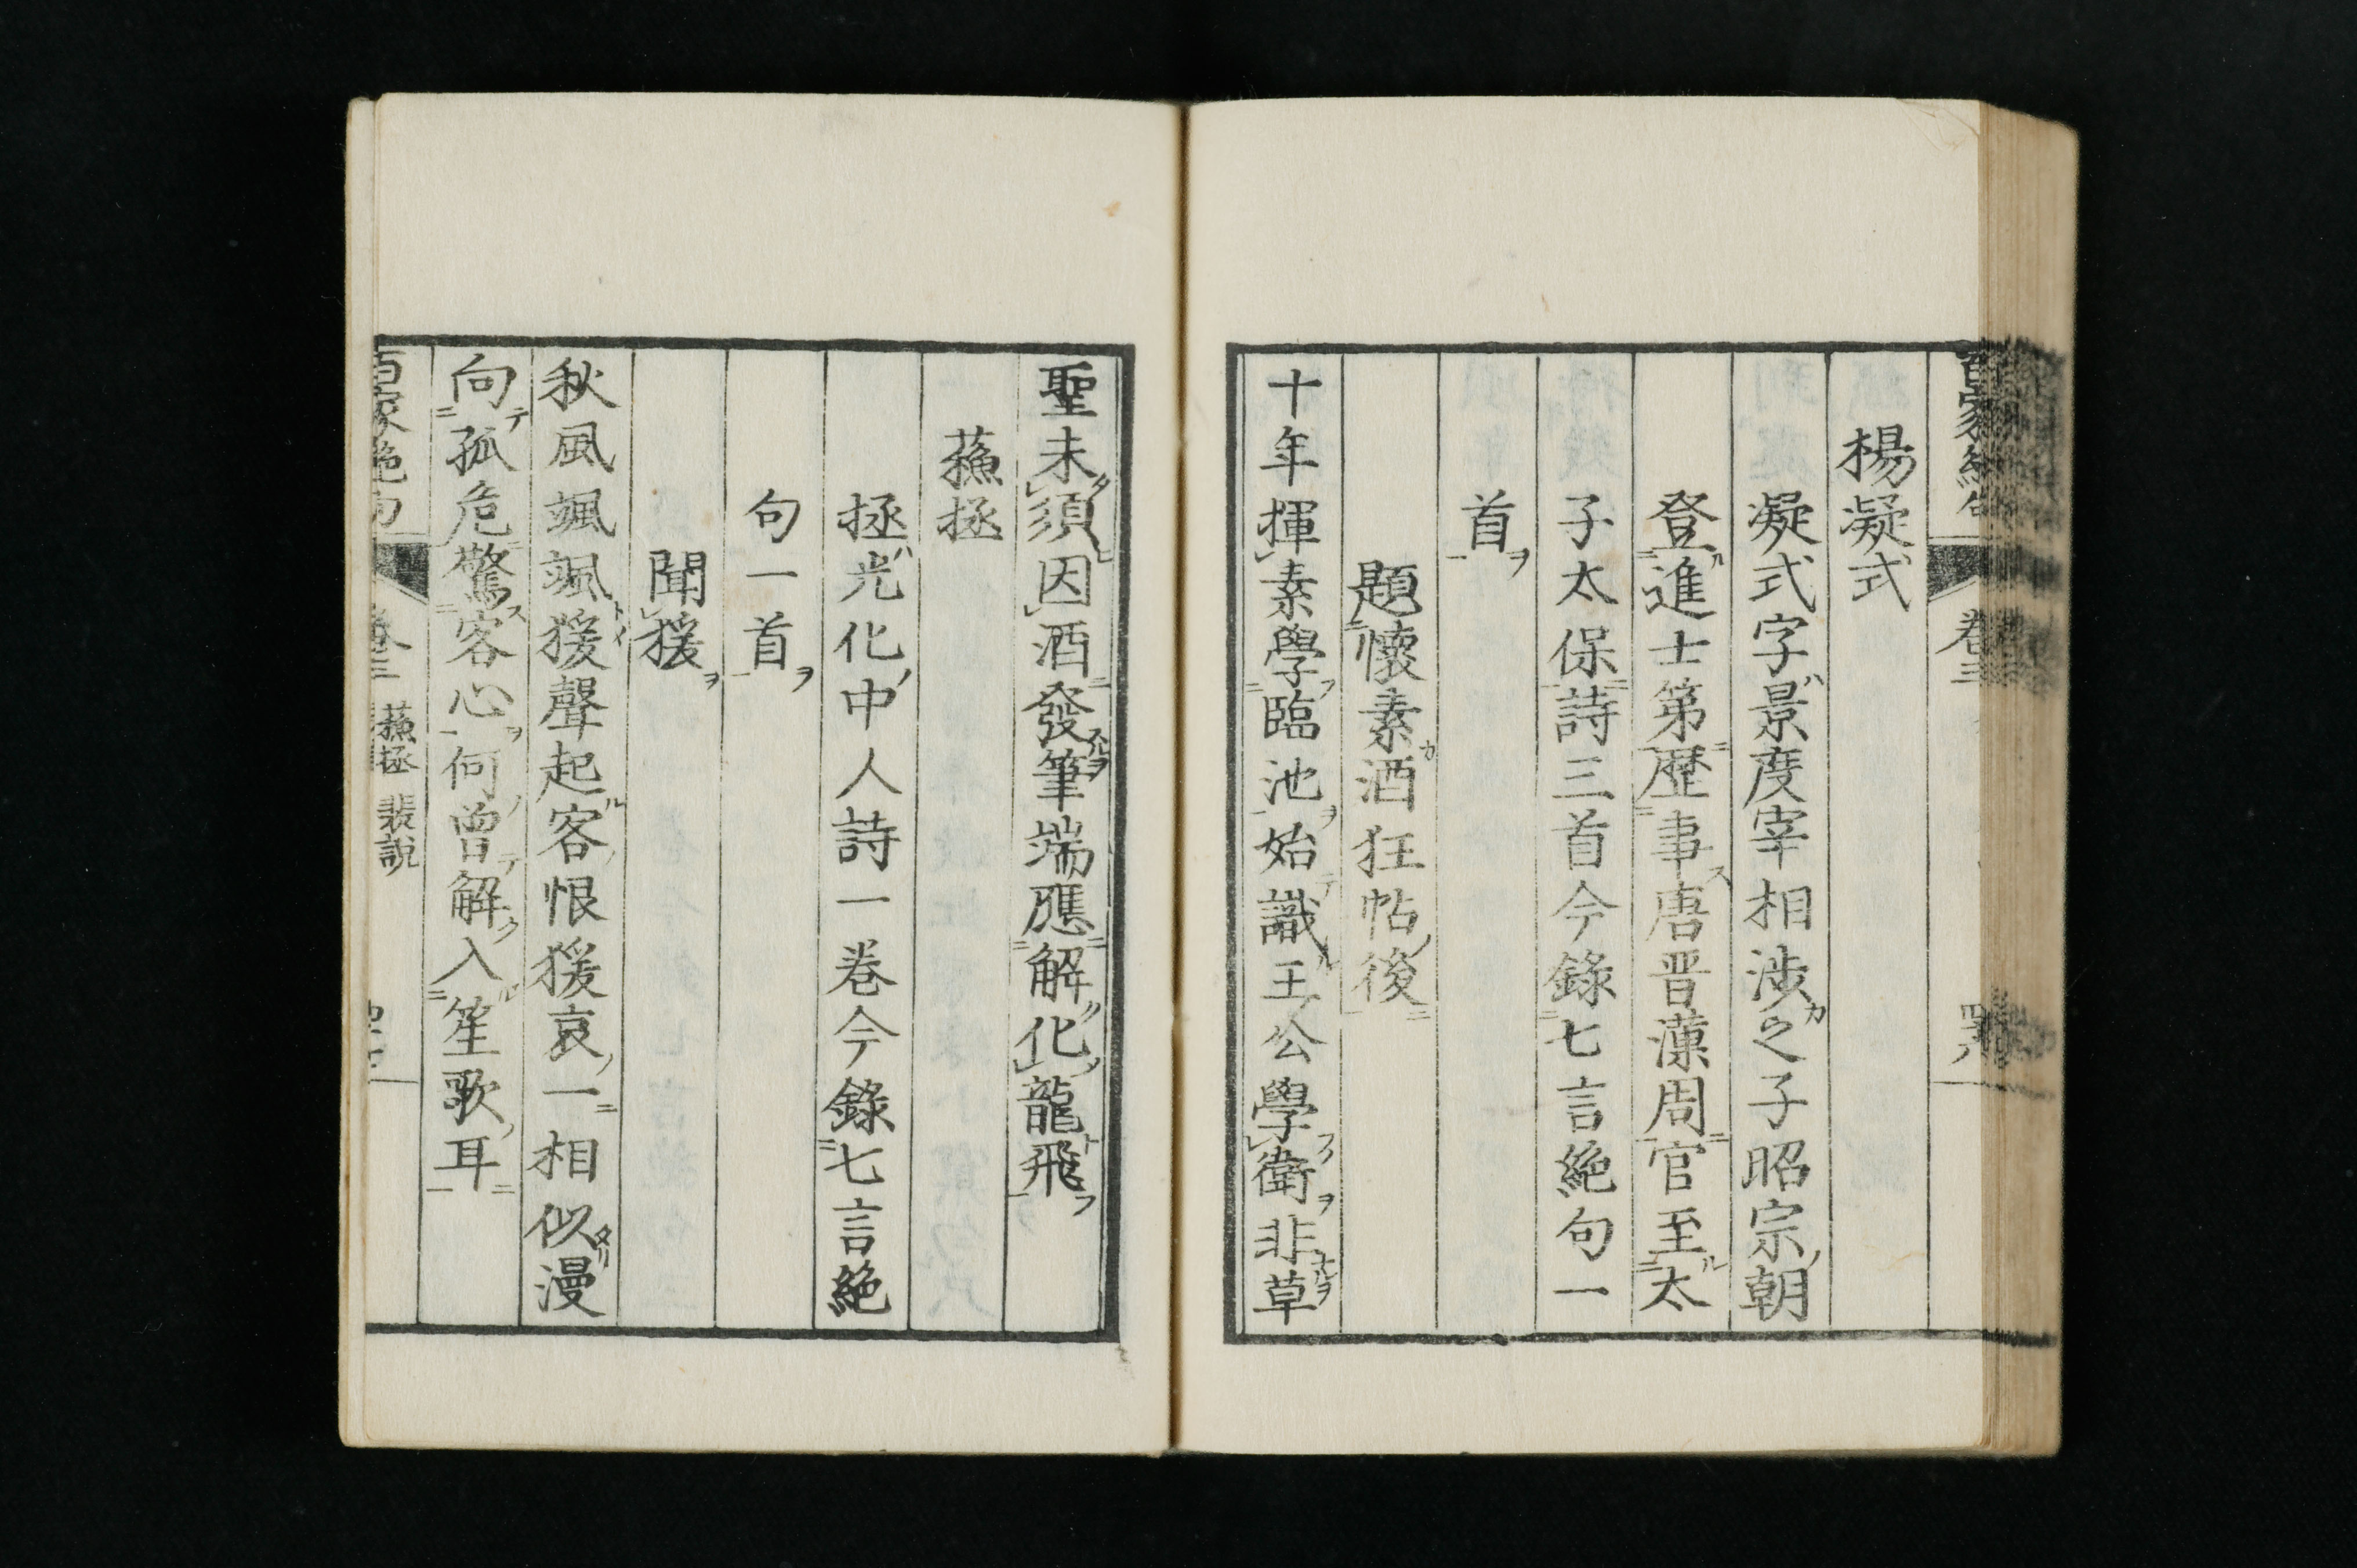 楊凝式
凝式字景度宰相涉之子昭宗朝
登進士第歷事唐晋漢周官至太
子太保詩三首今錄七言絶句一
首
題懷素酒狂帖後
十年揮素學臨池始識王公學衛非草
聖未須因酒發筆端應解化龍飛
蘓拯
拯光化中人詩一卷今錄七言絶
句一首
聞猨
秋風颯颯猨聲起客恨猨哀一相似漫
向孤危驚客心何曽解入笙歌耳
百家絶句 卷三 蘓拯 裴説